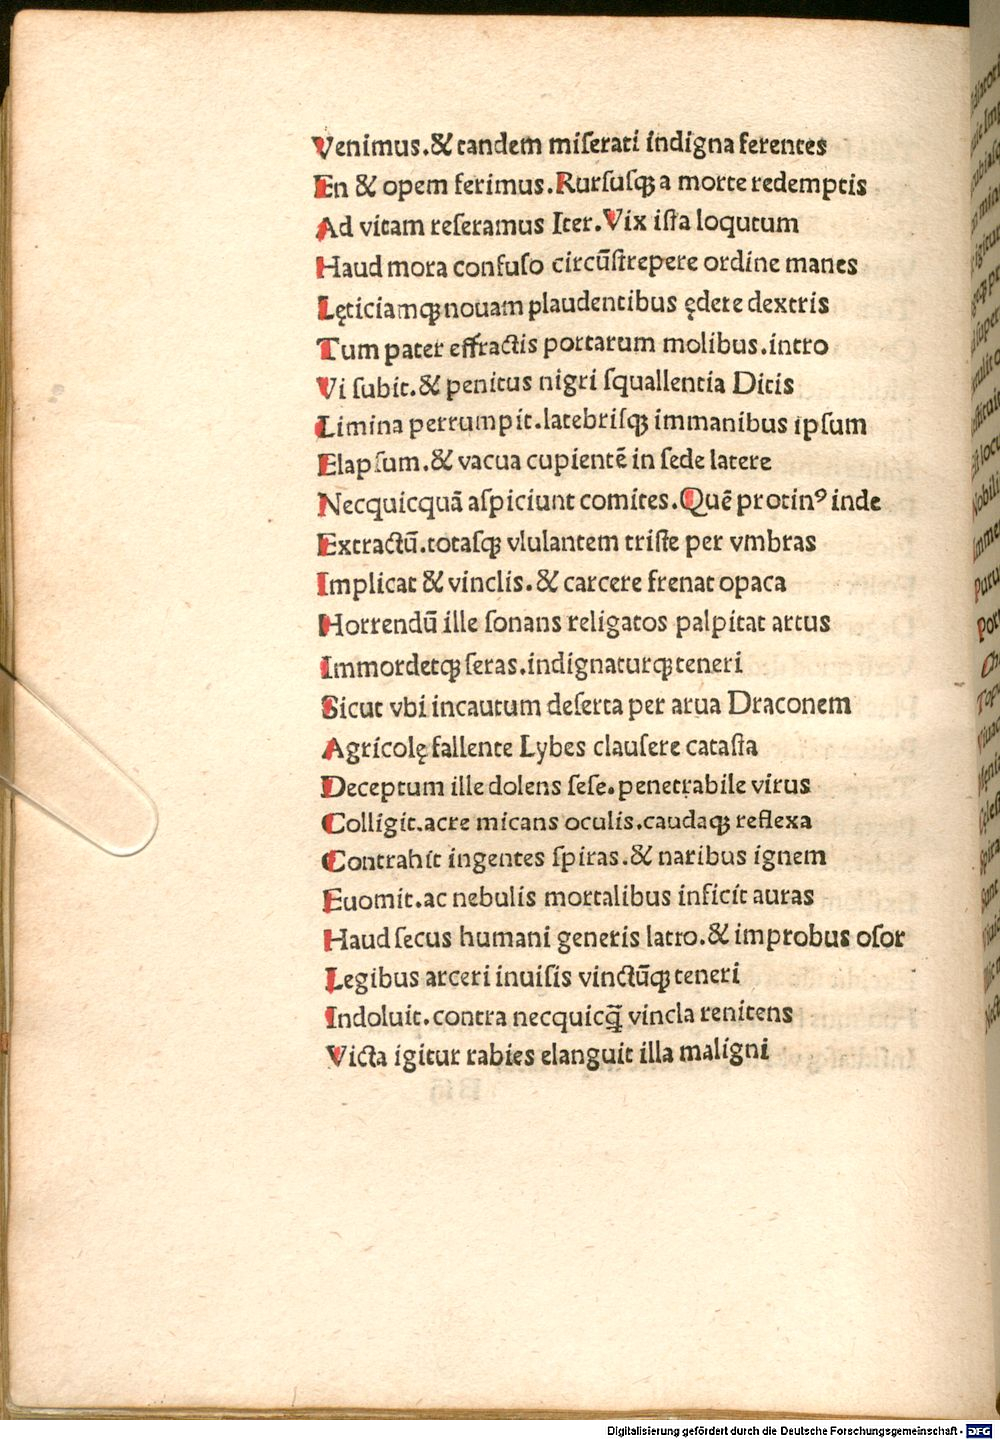 Venimus.& tandem miſerati indigna ferentes
En & opem ferimus.Rurſuſqꝫ a morte redemptis
Ad vitam reſeramus Iter.Vix iſta loqutum
Haud mora confuſo circūſtrepere ordine manes
Lęticiamqꝫ nouam plaudentibus ędere dextris
Tum pater effractis portarum molibus.intro
Vi ſubit.& penitus nigri ſquallentia Ditis
Limina perrumpit.latebriſqꝫ immanibus ipſum
Elapſum.& vacua cupientē in ſede latere
Necquicquā aſpiciunt comites.Quē protinꝰ inde
Extractū.totaſqꝫ vlulantem triſte per vmbras
Implicat & vinclis.& carcere frenat opaca
Horrendū ille ſonans religatos palpitat artus
Immordetqꝫ ſeras.indignaturqꝫ teneri
Sicut vbi incautum deſerta per arua Draconem
Agricolę fallente Lybes clauſere cataſta
Deceptum ille dolens ſeſe.penetrabile virus
Colligit.acre micans oculis.caudaqꝫ reflexa
Contrahit ingentes ſpiras.& naribus ignem
Euomit.ac nebulis mortalibus inficit auras
Haud ſecus humani generis latro.& improbus oſor
Legibus arceri inuiſis vinctūqꝫ teneri
Indoluit.contra necquicq̄ vincla renitens
Victa igitur rabies elanguit illa maligni
Digitalisierung gefördert durch die Deutsche Forschungsgemeinschaft - DFG